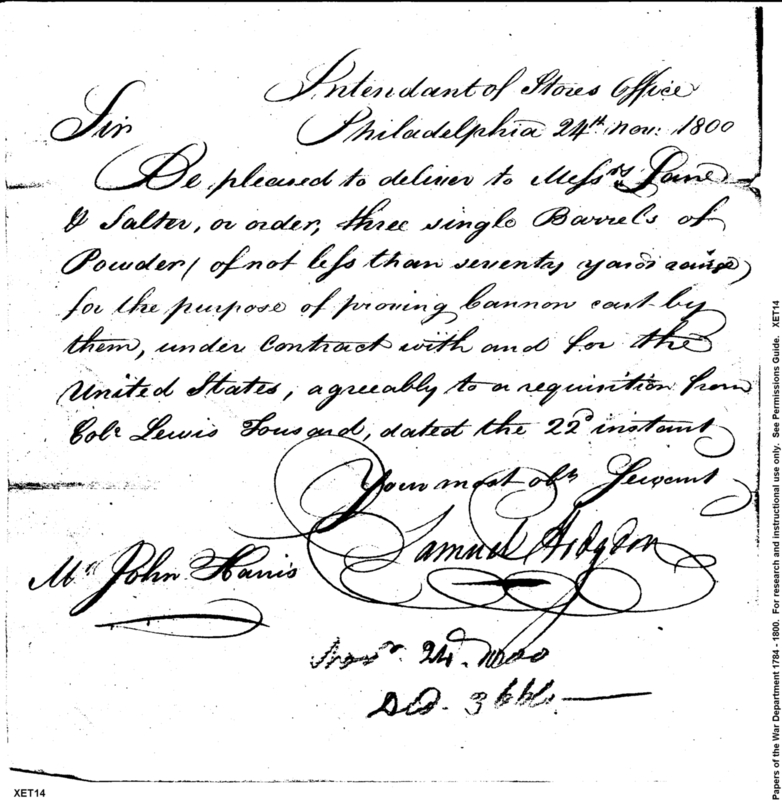 Intendant of Stores Office
Philadelphia 24th nov: 1800
Sir
Be pleased to deliver to Messrs Lane
& Salter, or order, three single Barrels of
Powder, (of not less than seventy yards range)
for the purpose of proving Cannon cast by
them, under contract with and for the
United States, agreeably to a requisition from
Colo. Lewis Tousard, dated the 22d instant
Your most obt Servant
Samuel Hodgdon
Mr John Harris
Novr. 24. 1800
DD. 3 bbls.
XET14
Papers of the War Department 1784 - 1800. For research and instructional use only. See Permissions Guide. XET14